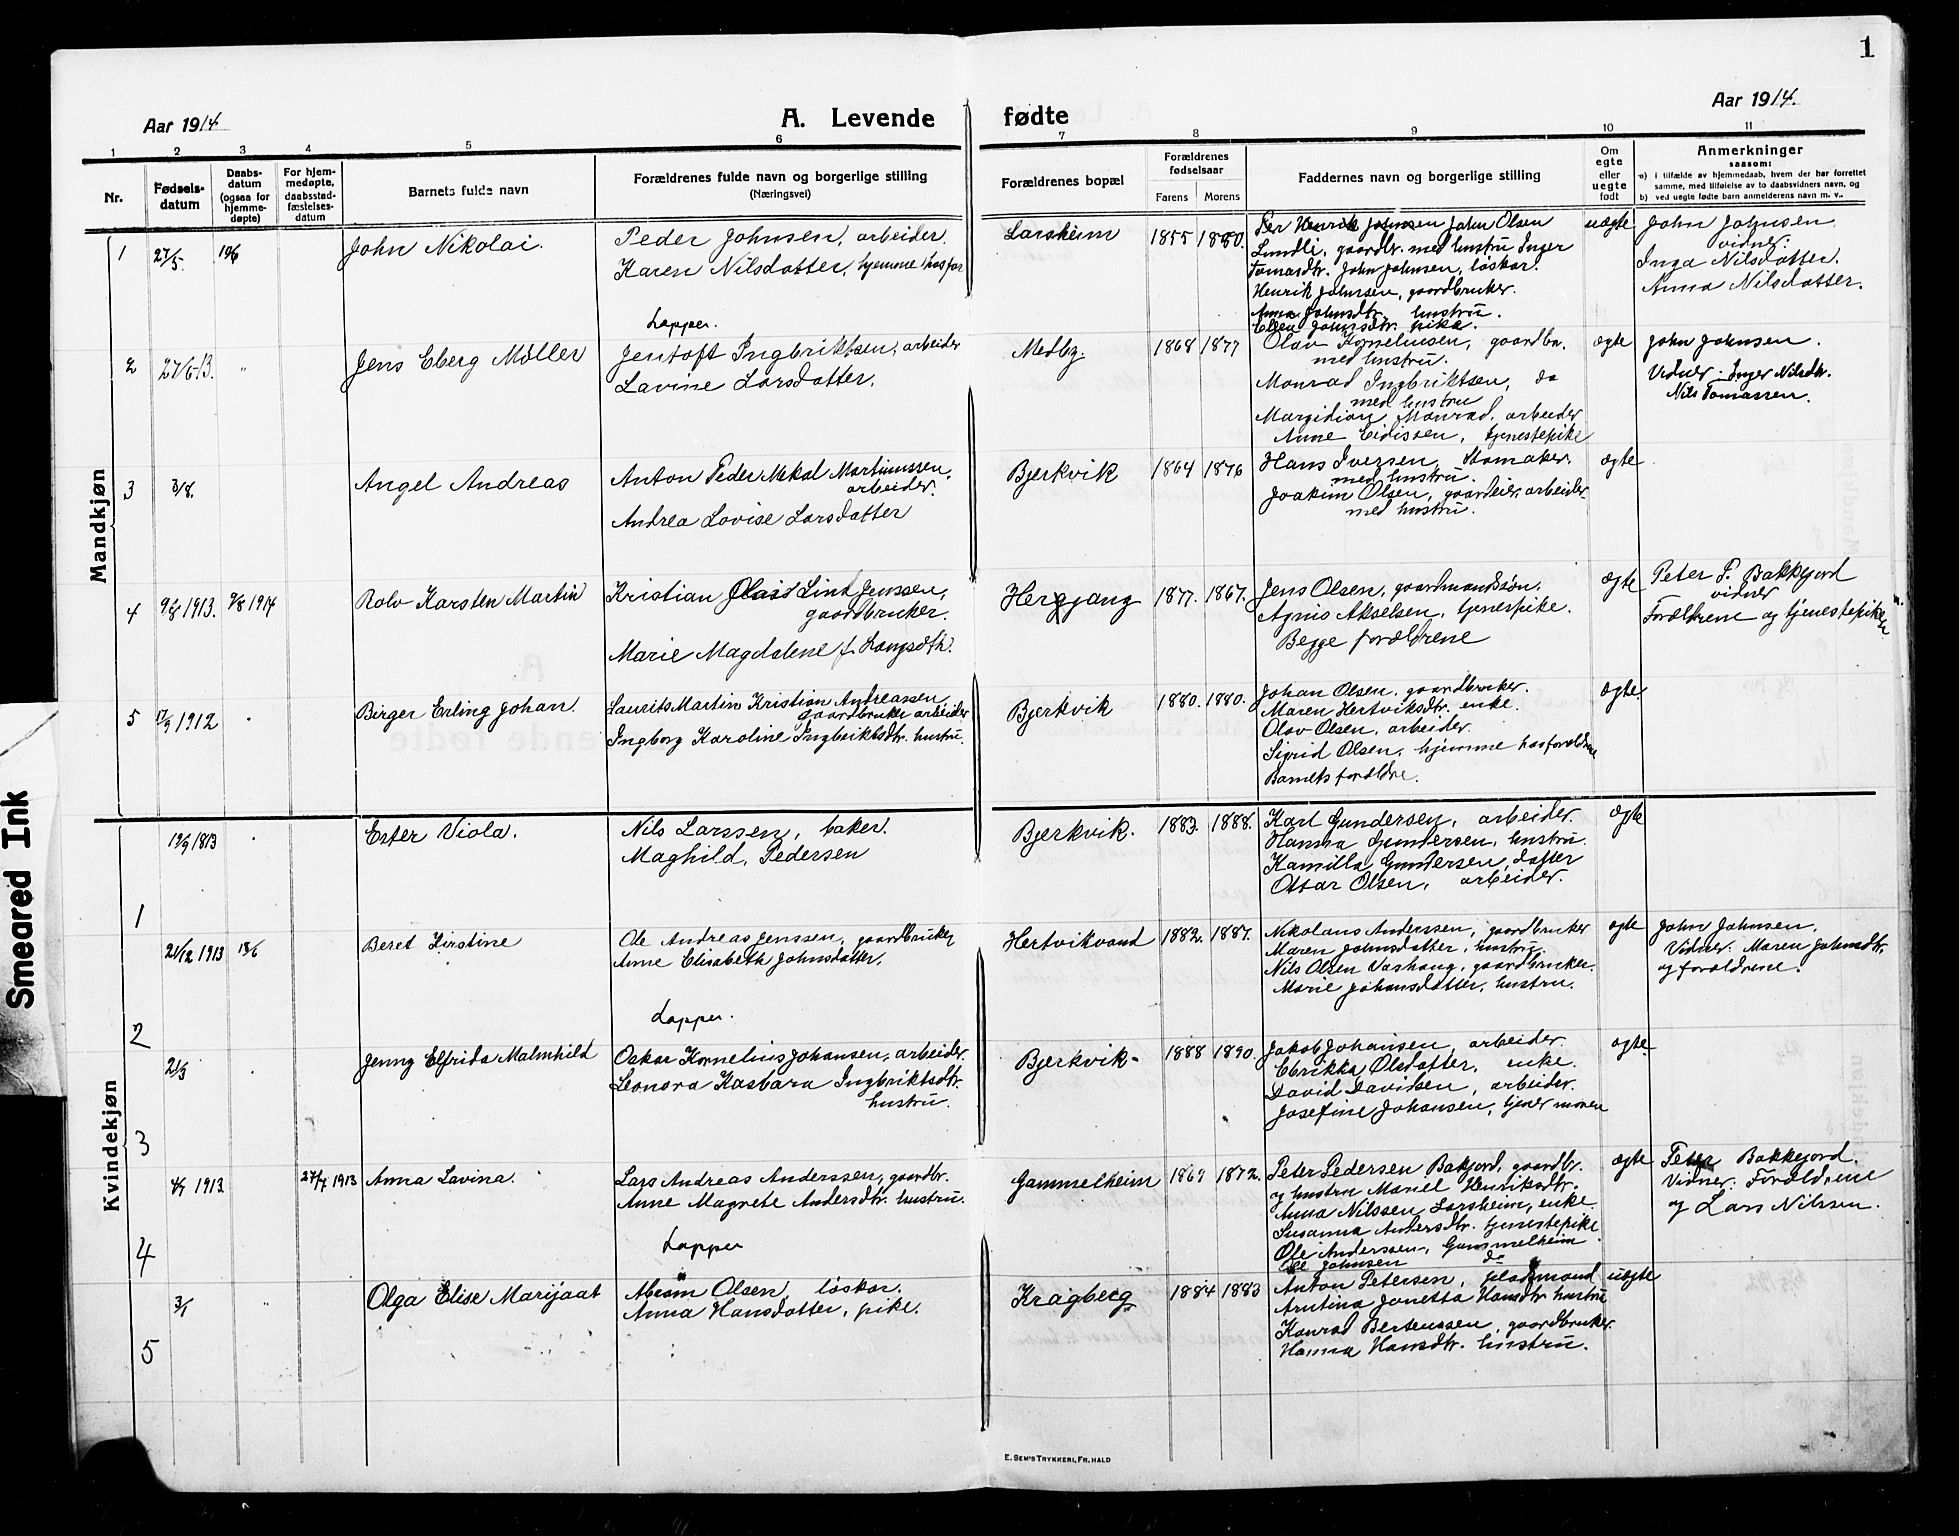 1
Aar 1914
A. Levende fødte
Aar 1914.
1 2 3 4 5 6 7 8 9 10 11
Nr.
Fødsels-
datum
Daabs-
datum
(ogsaa for
hjemme-
døpte)
For hjem-
medøpte,
daabsstad-
fæstelses-
datum
Barnets fulde navn
Forældrenes fulde navn og borgerlige stilling
(Næringsvei)
Forældrenes bopæl
Forældrenes
fødselsaar
Farens Morens
Faddernes navn og borgerlige stilling
Om
egte
eller
uegte
født
Anmerkninger
saasom:
a) i tilfælde av hjemmedaab, hvem der har forrettet
samme, med tilføielse av to daabsvidners navn, og
b) ved uegte fødte barn anmelderens navn m. v..
Mandkjøn
1 27/5. 10/6 John Nikolai.
Peder Johnsen, arbeider.
Karen Nilsdatter, hjemme hos far
Lapper.
Larsheim 1855 1880.
Per Henrik Johnsen John Olsen
Lundli, gaardbr. med hustru Inger
Tomasdtr. John Johnsen, løskar.
Henrik Johnsen, gaardbruker.
Anna Johnsdtr. hustru.
Ellen Johnsdtr. pike.
uegte
John Johnsen
vidner:
Inga Nilsdatter.
Anna Nilsdatter.
2 27/6-13. " Jens Eberg Møller
Jentoft Ingbriktsen, arbeider
Lavine Larsdatter.
Medby. 1868 1877
Olav Kornelinsen, gaardbr.
med hustru.
Monrad Ingbriktsen, do
med hustru
Margidion Monrad, arbeider
Anne Eidissen, tjenestepike
egte
John Johnsen.
Vidner: Inger Nilsdtr.
Nils Tomassen.
3 3/8. Angel Andreas
Anton Peder Mekal Martinussen
arbeider.
Andrea Lovise Larsdatter
Bjerkvik 1864 1876
Hans Iversen, Skomaker.
med hustru.
Joakim Olsen, gaardeier, arbeider
med hustru.
egte
4 9/8 1913. 9/8 1914 Rolv Karsten Martin
Kristian Olais Lind Jenssen,
gaardbruker.
Marie Magdalene f. Hansdtr.
Hergjang 1877. 1867.
Jens Olsen, gaardmandssøn.
Agnis Akselsen, tjenespike.
Begge forældrene
egte
Peter P. Bakkejord
vidner
Forældrene og tjenestepiken
5 17/9 1912 " Birger Erling Johan
Laurits Martin Kristian Andreassen
gaardbruker arbeider
Ingborg Karoline Ingbriktsdtr. hustru.
Bjerkvik 1880. 1880.
Johan Olsen, gaardbruker.
Maren Hertviksdtr. enke.
Olav Olsen, arbeider.
Sigrid Olsen, hjemme hos forældre
Barnets forældre.
egte
Kvindekjøn
1 19/9 1813 " Ester Viola.
Nils Larssen, baker.
Maghild, Pedersen
Bjerkvik. 1883. 1888.
Karl Gundersen, arbeider.
Hanna Gundersen, hustru.
Kamilla Gundersen, datter
Ottar Olsen, arbeider.
egte
2 21/12 1913 18/6 Beret Kirstine
Ole Andreas Jenssen, gaardbruker
Anne Elisabeth Johnsdatter.
Lapper.
Hertvikvand 1882. 1887.
Nikolaus Anderssen, gaardbruker
Maren Johnsdatter, hustru.
Nils Olsen Vashaug, gaardbruker.
Marie Johansdatter, hustru.
egte
John Johnsen.
Vidner: Maren Johnsdtr.
og forældrene.
3 21/3 " Jenny Elfrida Malmhild
Oskar Kornelius Johansen, arbeider.
Leonora Kasbara Ingbriktsdtr.
hustru.
Bjerkvik- 1888 1890
Jakob Johansen, arbeider.
Ebrikka Olsdatter, enke.
David Davidsen, arbeider.
Josefine Johansen, tjener moren
egte.
4 4/7 1913 27/7 1913 Anna Lavina.
Lars Andreas Anderssen, gaardbr.
Anne Magrete Andersdtr. hustru.
Lapper
Gammelheim 1869 1872.
Peter Pedersen Bakjord, gaardbr.
og hustru Mariel Henriksdtr.
Anna Nilssen Larsheim, enke.
Susanna Andersdtr. tjenestepike
Ole Anderssen, Gammelheim.
Ole Johnsen do
egte
Peter Bakkejord.
Vidner: Forældrene
og Lars Nilssen.
5 3/1 " Olga Elise Marijaat
Abram Olsen, løskar.
Anna Hansdatter, pike.
Kragberg 1884 1883
Anton Petersen, pladsmand
Arntina Jonetta Hansdtr. hustru
Konrad Bertenssen, gaardbruker.
Hanna Hansdtr. hustru.
uegte
E. SEM'S TRYKKERI, FR. HALD
Smeared Ink